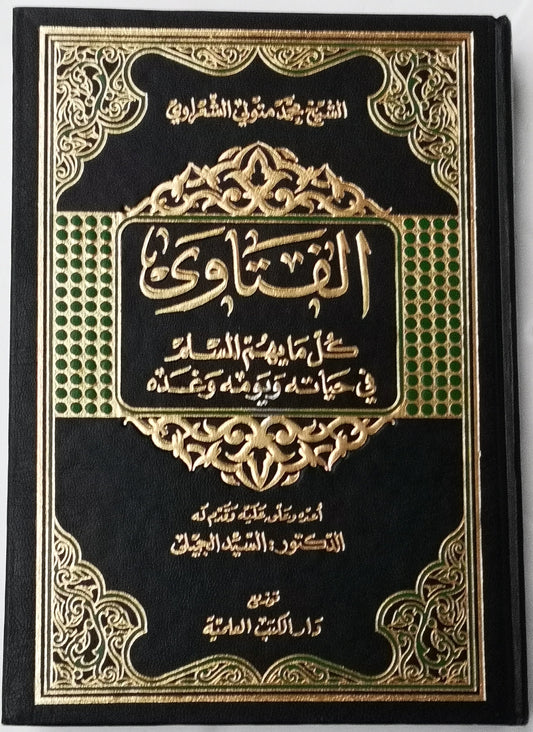 الشيخ محمد متولي الشعراوي
الفتاوى
كل ما يهم المسلم
في حياته ويومه وغده
أعده وعلق عليه وقدم له
الدكتور: السيد الجميلي
توزيع
دار الكتب العلمية